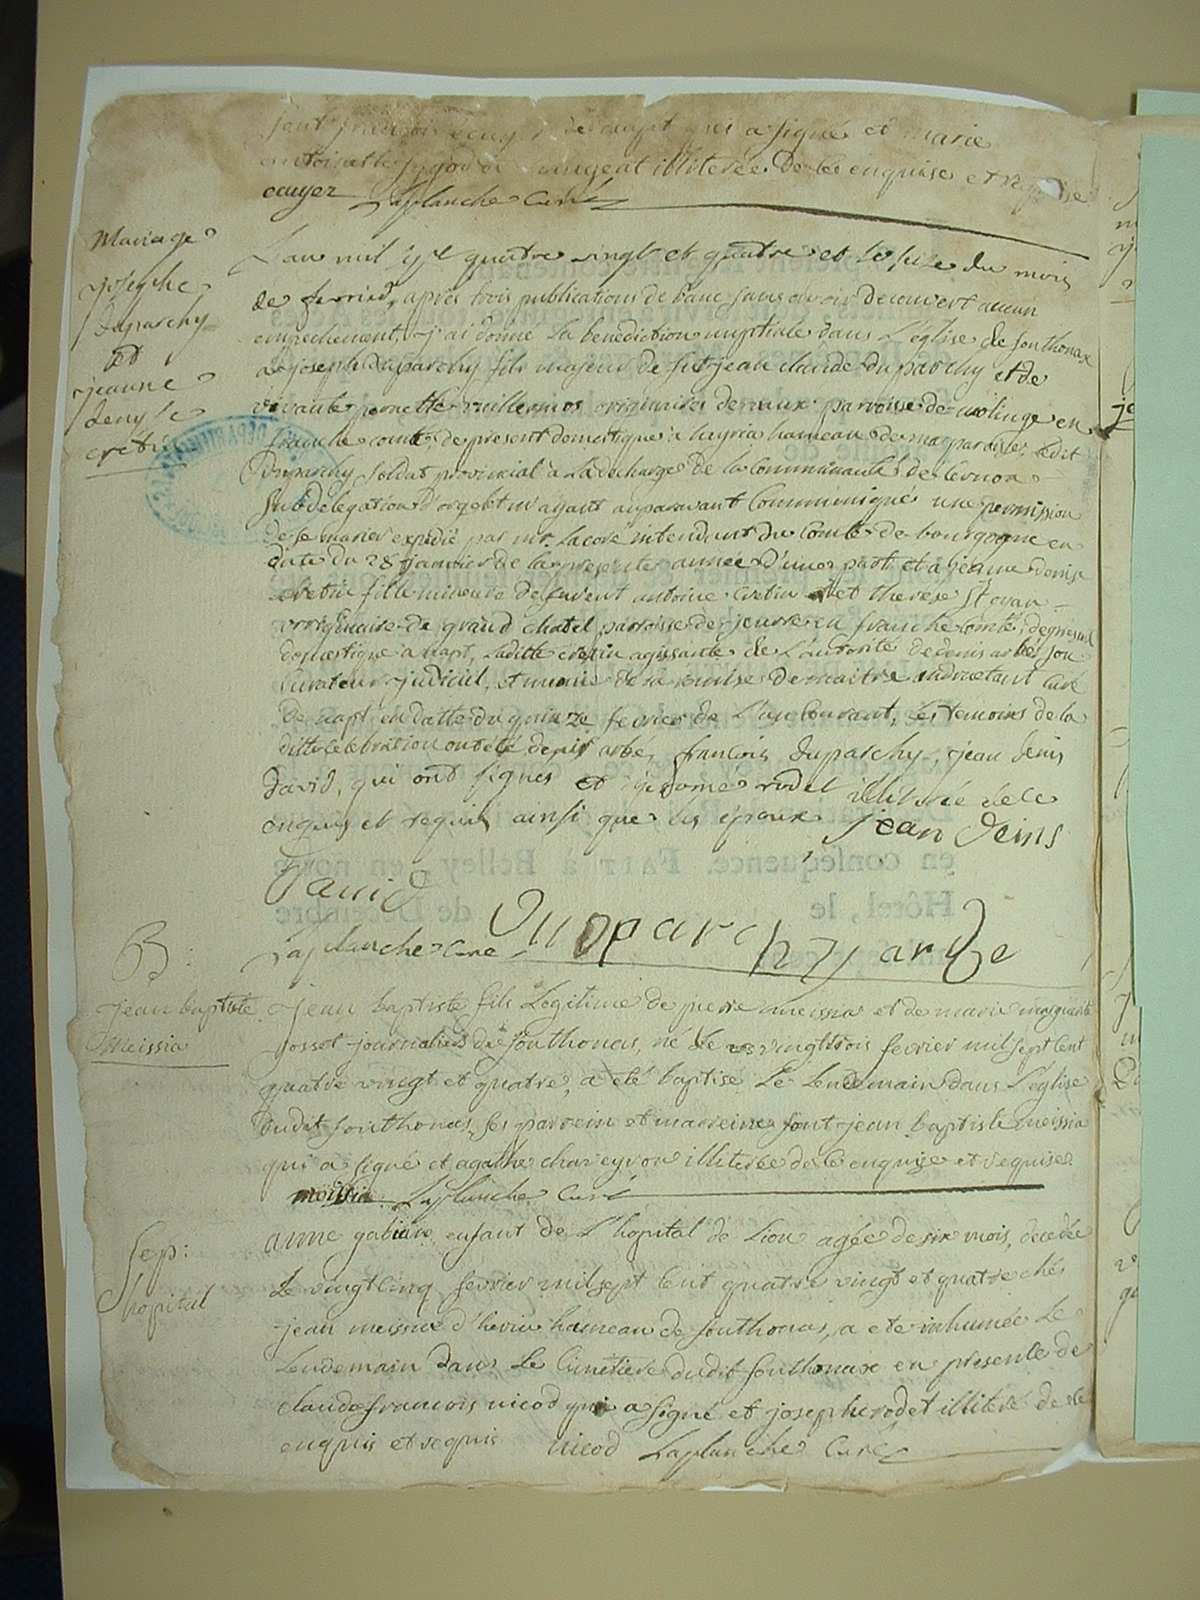 sont françois qui a signé et marie
antoinette illiterée De ce enquise et requise
cauyer Laplanche Curé
Mariage
joseph
duparchy
et
jeanne
denyse
cretin
L'an mil sept quatre vingt et quatre et le seize du mois
de fevrier, après trois publications de banc sans avoir decouvert aucun
empechement, j'ai donné la benediction nuptiale dans L'eglise de sonthonax
a joseph duparchy fils majeur de fut jean claude duparchy et de
vivante pernette vuillermos originaires de vaux parroisse de molinge en
franche comté, de present domestique à heyria hameau de ma parroisse, ledit
Duparchy soldat provincial a La decharge de la Communauté de Cernon
Subdelegation d'orgelet m'ayant auparavant Communiqué une permission
de se marier expedié par mr. Lacore intendant du Comté de bourgogne en
date du 28 janvier de la presente année d'une part et a jeanne denise
cretin fille mineure de furent antoine Cretin et therese St oyan
originaire de grand chatel parroisse de jeurre en franche Comté, de present
domestique a napt, Laditte cretin agissante de L'autorité de denis arbé son
Curateur judiciel, et munie de la remise De maitre Curé
De napt en datte du quinze fevrier de L'an Courant, Les temoins de la
ditte Celebration ont été denis arbé, françois duparchy, jean denis
David, qui ont signés et jerome rodet illiterée de ce
enquis et requis ainsi que les epoux jean denis
David
Duparchy arbe
Laplanche Cure
B:
jean baptiste
Meissia
jean baptiste fils Legitime de pierre meissia et de marie marguerite
josset journaliers de sonthonas, né le vingt trois fevrier mil sept Cent
quatre vingt et quatre, a été baptisé Le Lendemain dans L'eglise
dudit sonthonas, ses parrein et marreine sont jean baptiste meissia
qui a signé et agathe chareyron illiterée de ce enquise et requise
meissia Laplanche Curé
Sep:
hopital
anne gabiane, enfant de L'hopital de Lion agée de six mois, decedée
Le vingt cinq fevrier mil sept Cent quatre vingt et quatre chés
jean meissia d'heiria hameau de sonthonas, a eté inhumée Le
Lendemain dans Le Cimetiere dudit sonthonax en presence de
claude françois nicod qui a signé et joseph rodet illiteré de ce
enquis et requis nicod Laplanche Curé